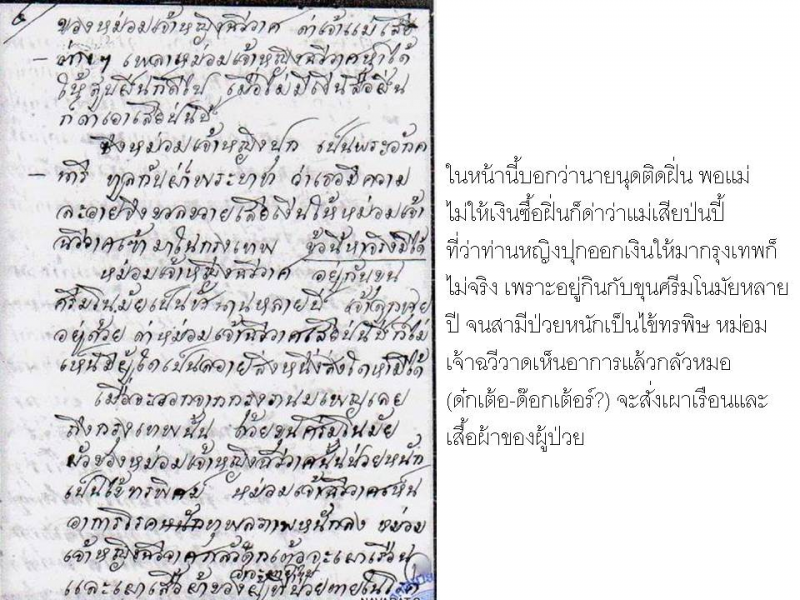 ของหม่อมเจ้าหญิงฉวีวาศ ด่าเจ้าแม่เสีย
ต่างๆ เพลาหม่อมเจ้าหญิงฉวีวาศหาได้
ให้สูบฝิ่นก็ดีไป เมื่อไม่มีเงินซื้อฝิ่น
ก็ด่าเอาเสียป่นปี้
ซึ่งหม่อมเจ้าหญิงปุก เป็นพระอัคค
ทูลกับฝ่าพระบาท ว่าเธอมีความ
ละอายจึงขวลขวายเสียเงินให้หม่อมเจ้า
ฉวีวาศเข้ามาในกรุงเทพ ข้อนี้หาจริงมิได้
หม่อมเจ้าหญิงฉวีวาศ อยู่กับขุน
ศรีมโนมัยเป็นช้านานหลายปี
อยู่ด้วย ด่าหม่อมเจ้าฉวีวาศเสียป่นปี้ก็ไม่
เห็นมีผู้ใดเป็นลอายสิ่งหนึ่งสิ่งใดหามิได้
ถึงกรุงเทพนั้น ด้วยขุนศรีมโนมัย
ผัวของหม่อมเจ้าหญิงฉวีวาศนั้นป่วยหนัก
เป็นไข้ทรพิศม์ หม่อมเจ้าฉวีวาศเห็น
อาการโรคหนักทุพลภาพหนักลง หม่อม
เจ้าหญิงฉวีวาศกลัวดึกเต้อจะเผาเรือน
และเผาเสื้อผ้าของผู้ที่ป่วย
ในหน้านี้บอกว่านายนุดติดฝิ่น พอแม่
ไม่ให้เงินซื้อฝิ่นก็ด่าว่าแม่เสียป่นปี้
ที่ว่าท่านหญิงปุกออกเงินให้มากรุงเทพก็
ไม่จริง เพราะอยู่กินกับขุนศรีมโนมัยหลาย
ปี จนสามีป่วยหนักเป็นไข้ทรพิษ หม่อม
เจ้าฉวีวาดเห็นอาการแล้วกลัวหมอ
(ด๋กเต้อ-ด๊อกเต้อร์?) จะสั่งเผาเรือนและ
เสื้อผ้าของผู้ป่วย